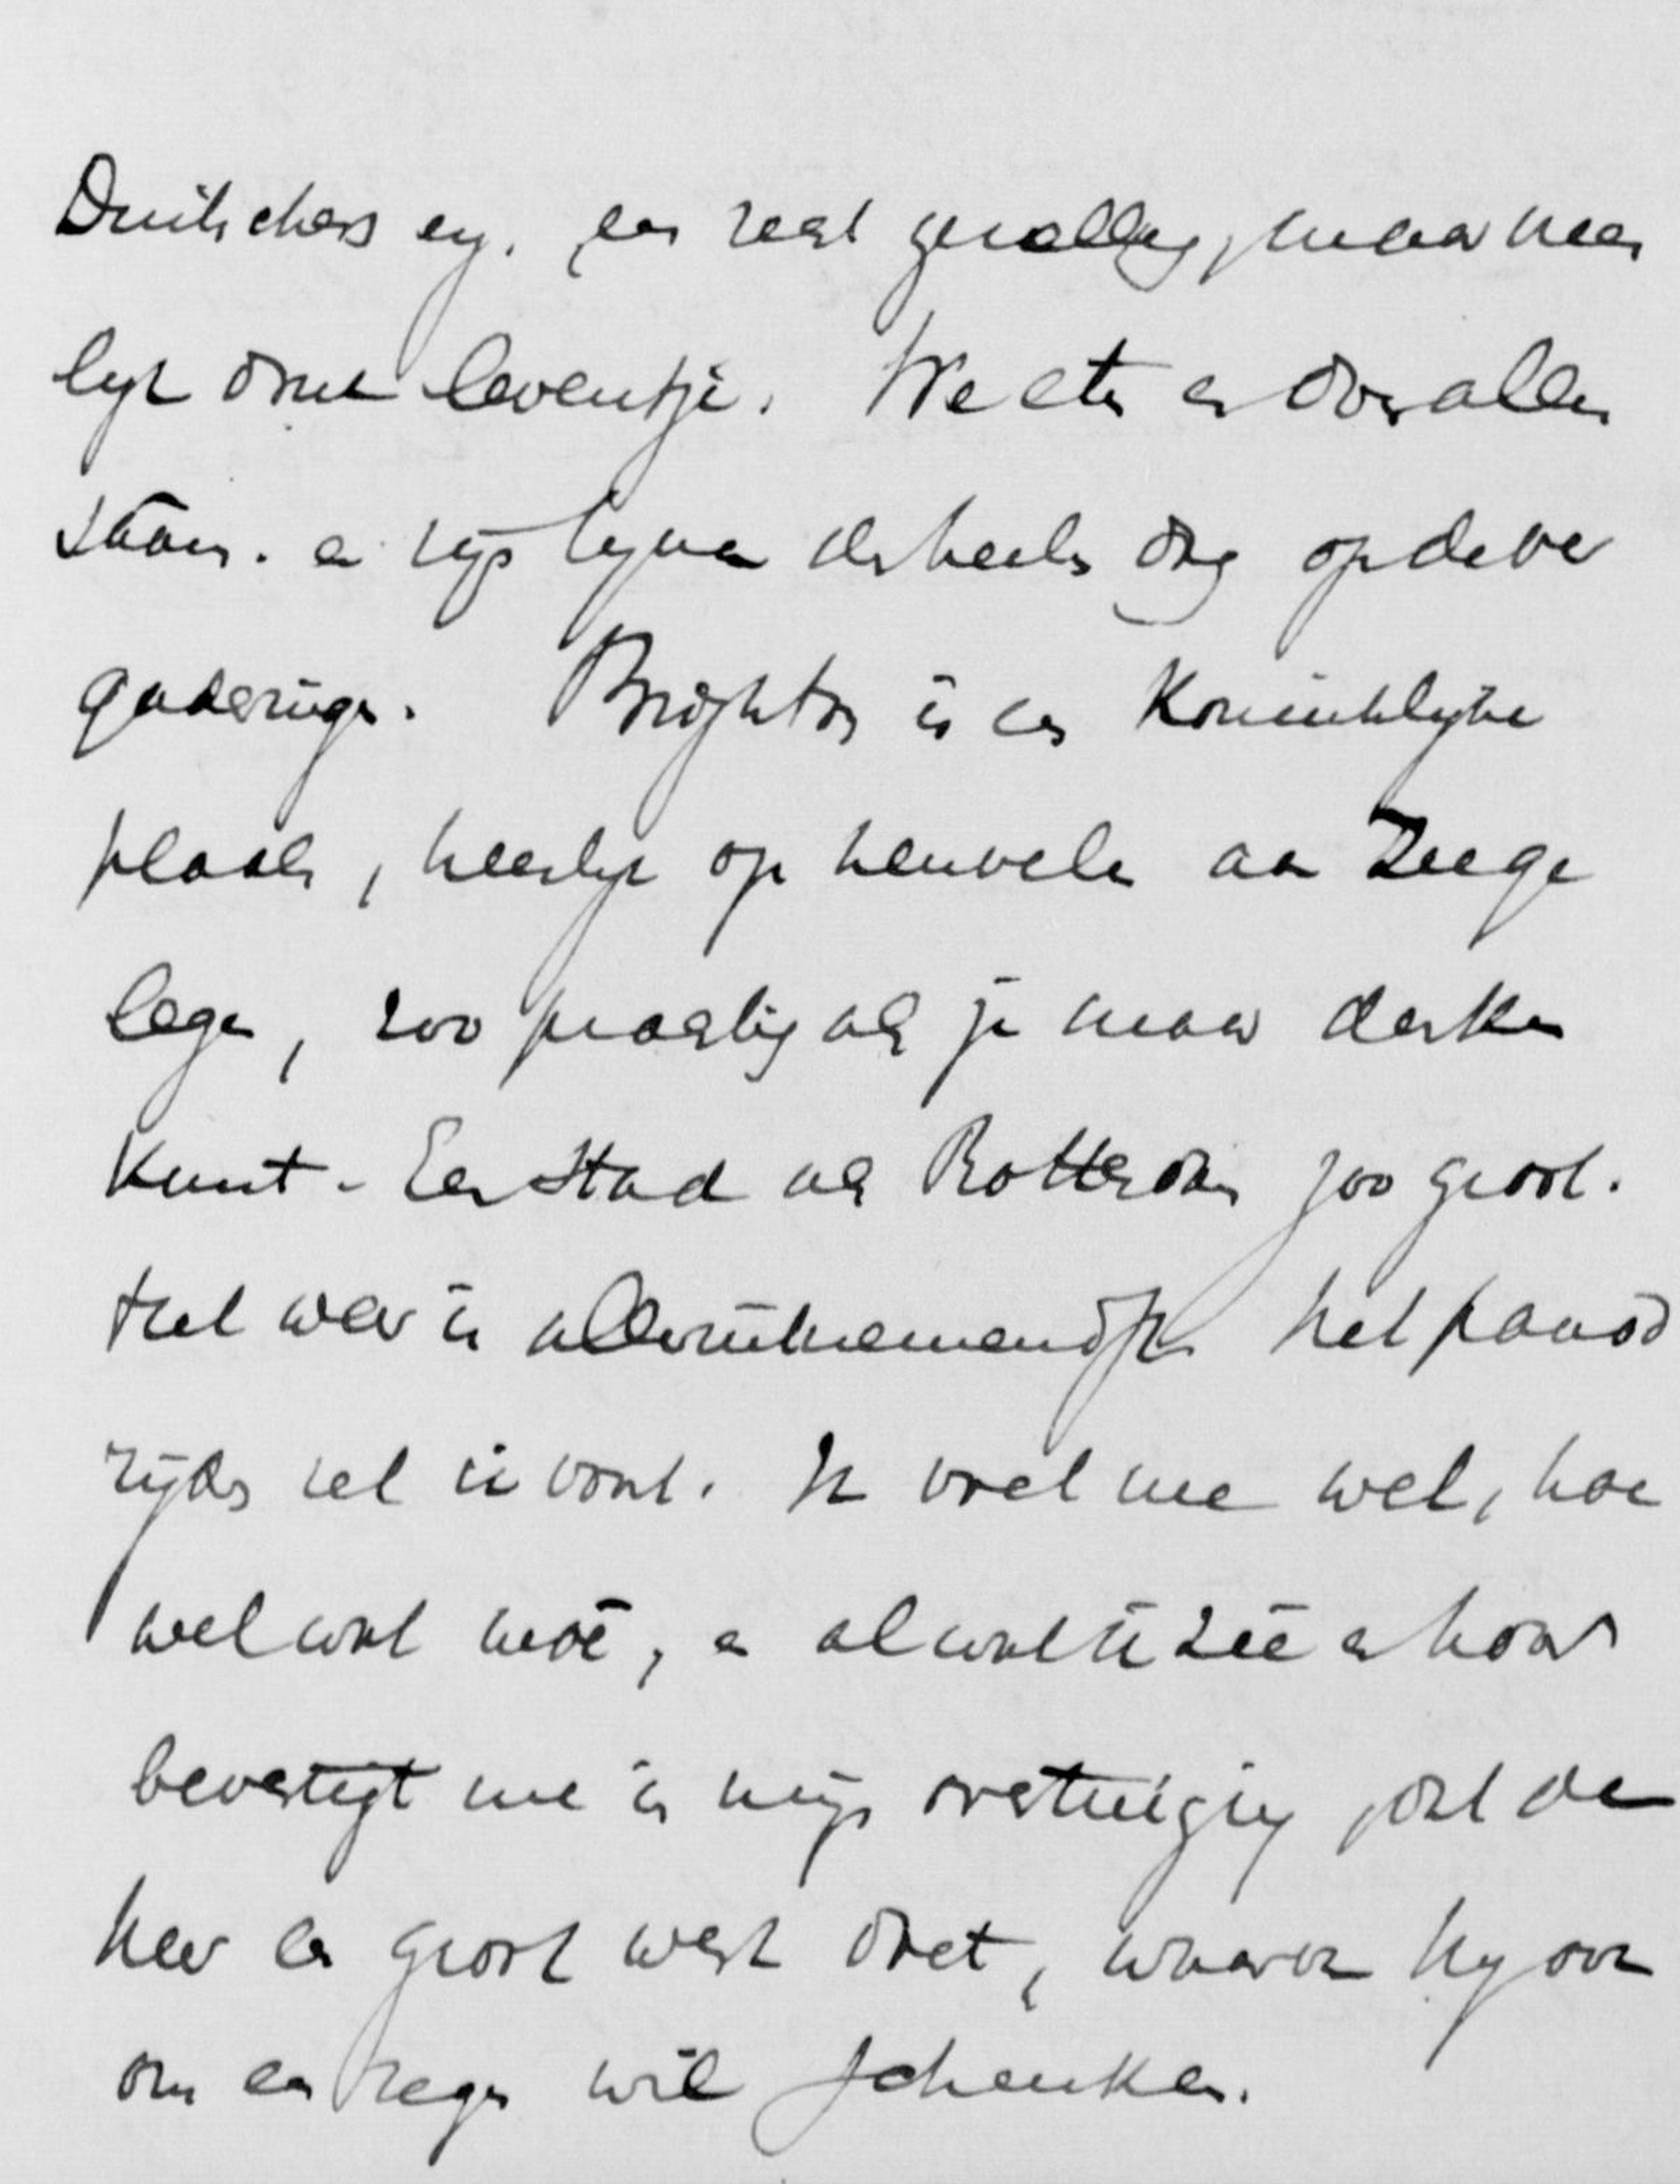 Duitschers enz. een zeer gezellig, maar heer
lijk druk leventje. We eten er overal
samen en zijn bijna den heelen dag op de ver
gaderingen. Brighton is een Koninklijke
plaats, heerlijk op heuvels aan Zee ge
legen, zoo prachtig als je maar denken
kunt. Een stad als Rotterdam zoo groot.
Het weer is alleruitnemendst. Het paard
rijden zet ik voort. Ik voel me wel, hoe
wel wat moê, en al wat ik zie en hoor
bevestigt me in mijn overtuiging, dat de
Heer een groot werk doet, waarin hij ook
ons een zegen wil schenken.